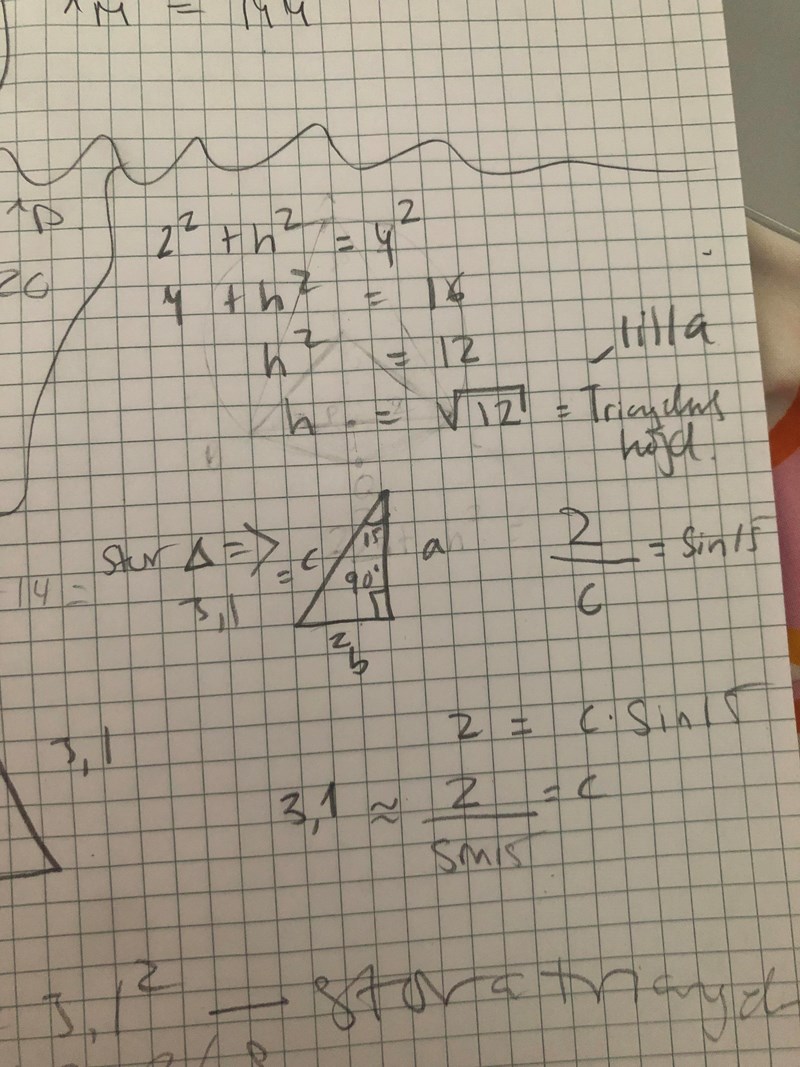 1M = 144
1D
20
2² + h² = 4²
4 + h² = 16
h² = 12
h = √12 = Triangelns höjd.
lilla
Stor Δ => c
3,1 =
15
90°
a
2
b
2/c = Sin15
14 =
3,1
2 = c · Sin15
3,1 ≈ 2/Sin15 = c
3,1² — stora triangel